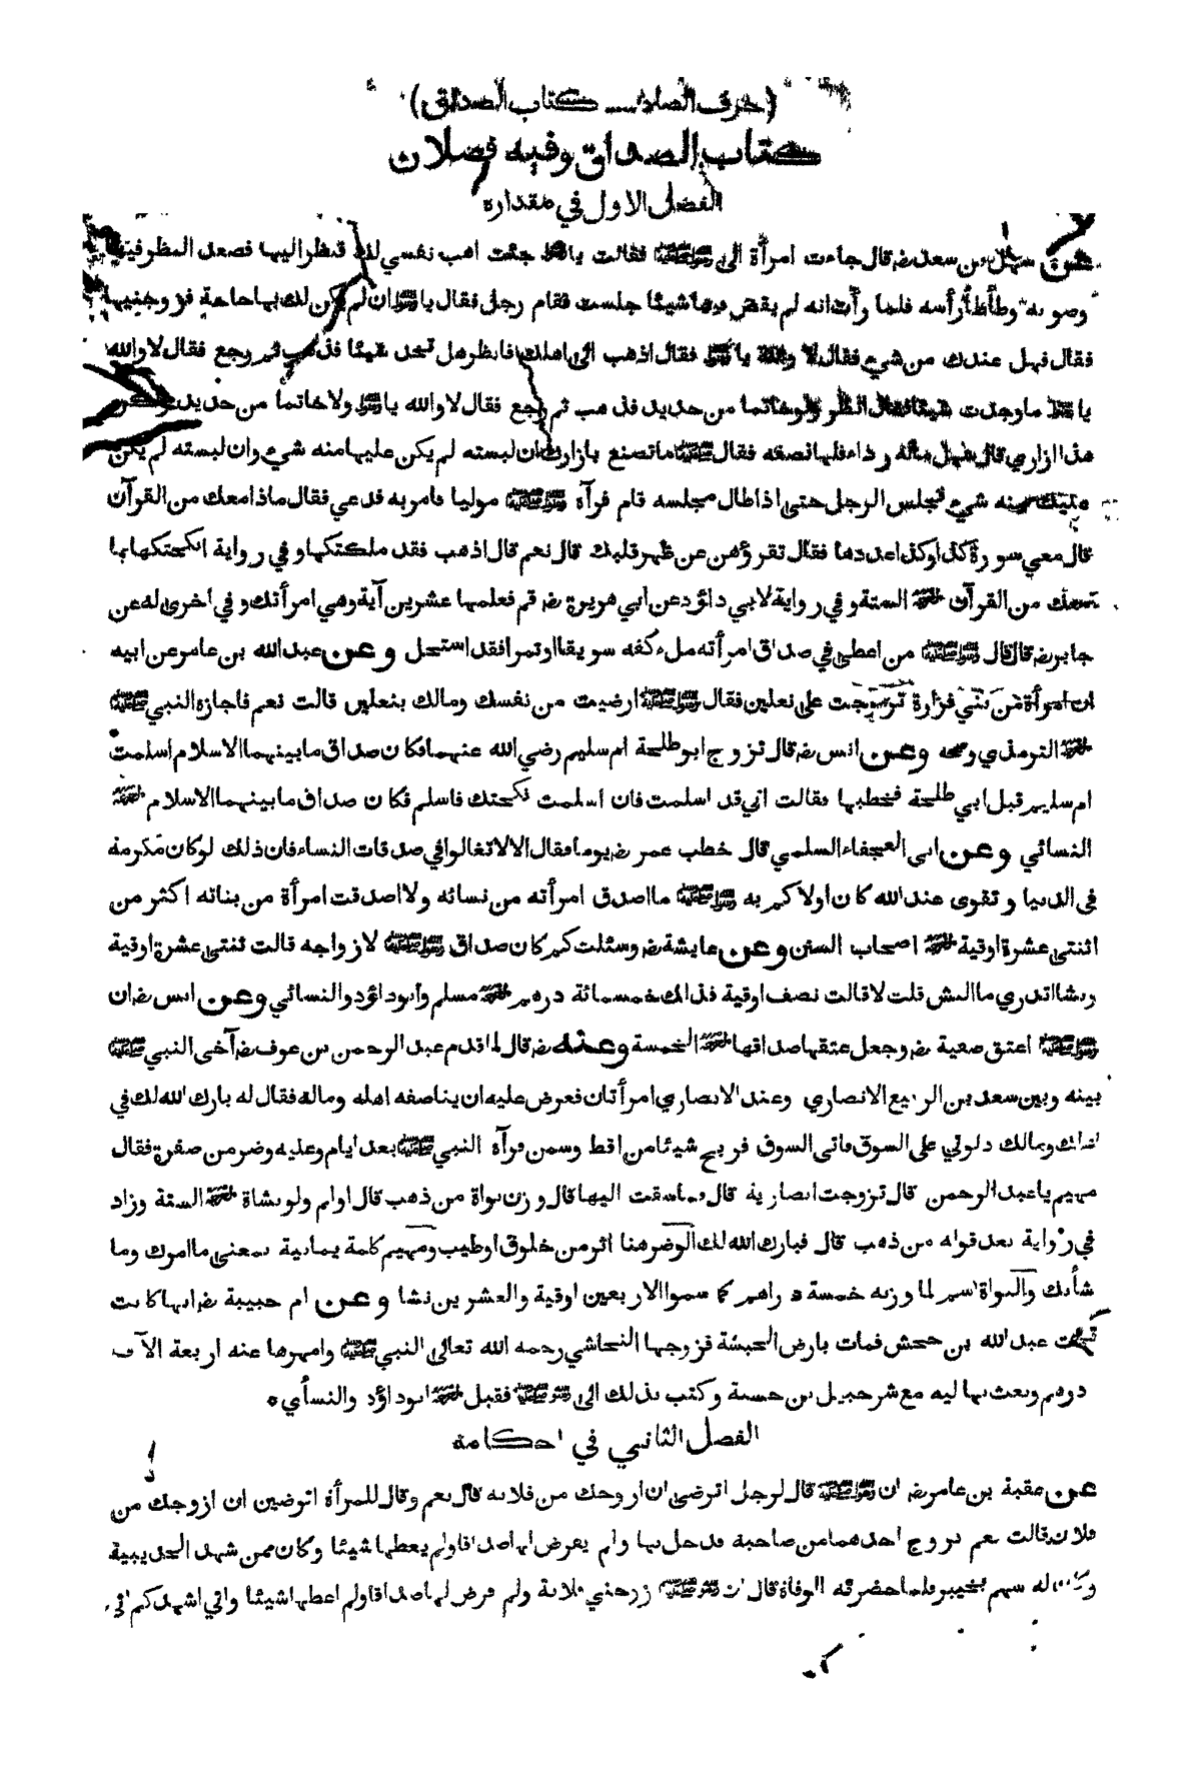 (حرف الصاد ـــ كتاب الصداق)
كتاب الصداق وفيه فصلان
الفصل الاول في مقداره
عن سهل بن سعد رضـ قال جاءت امرأة الى رسول الله ﷺ فقالت يا رسول الله جئت اهب نفسي لك فنظر اليها فصعد النظر فيها
وصوبه وطأطأ رأسه فلما رأت انه لم يقض فيها شيئا جلست فقام رجل فقال يا رسول الله ان لم يكن لك بها حاجة فزوجنيها
فقال فهل عندك من شيء فقال لا والله يا رسول الله فقال اذهب الى اهلك فانظر هل تجد شيئا فذهب ثم رجع فقال لا والله
يا رسول الله ما وجدت شيئا فقال انظر ولو خاتما من حديد فذهب ثم رجع فقال لا والله يا رسول الله ولا خاتما من حديد ولكن
هذا ازاري قال سهل ماله رداء فلها نصفه فقال رسول الله ﷺ ما تصنع بازارك ان لبسته لم يكن عليها منه شيء وان لبسته لم يكن
عليك منه شيء فجلس الرجل حتى اذا طال مجلسه قام فرآه رسول الله ﷺ موليا فامر به فدعي فقال ماذا معك من القرآن
قال معي سورة كذا وكذا عددها فقال تقرؤهن عن ظهر قلبك قال نعم قال اذهب فقد ملكتكها وفي رواية انكحتكها بما
معك من القرآن اخرجه الستة وفي رواية لابي داؤد عن ابي هريرة رضـ قم فعلمها عشرين آية وهي امرأتك وفي اخرى له عن
جابر رضـ قال قال رسول الله ﷺ من اعطى في صداق امرأته ملء كفه سويقا او تمرا فقد استحل وعن عبد الله بن عامر عن ابيه
ان امرأة من بني فزارة تزوجت على نعلين فقال رسول الله ﷺ ارضيت من نفسك ومالك بنعلين قالت نعم فاجازه النبي ﷺ
اخرجه الترمذي وصححه وعن انس رضـ قال تزوج ابو طلحة ام سليم رضي الله عنهما فكان صداق ما بينهما الاسلام اسلمت
ام سليم قبل ابي طلحة فخطبها فقالت اني قد اسلمت فان اسلمت نكحتك فاسلم فكان صداق ما بينهما الاسلام اخرجه
النسائي وعن ابى العجفاء السلمي قال خطب عمر رضـ يوما فقال الا لا تغالوا في صدقات النساء فان ذلك لو كان مكرمة
في الدنيا وتقوى عند الله كان اولاكم به رسول الله ﷺ ما اصدق امرأته من نسائه ولا اصدقت امرأة من بناته اكثر من
اثنتى عشرة اوقية اخرجه اصحاب السنن وعن عايشة رضـ وسئلت كم كان صداق رسول الله ﷺ لازواجه قالت ثنتى عشرة اوقية
ونشا اتدري ما النش قلت لا قالت نصف اوقية فذلك خمسمائة درهم اخرجه مسلم وابو داؤد والنسائي وعن انس رضـ ان
رسول الله ﷺ اعتق صفية رضـ وجعل عتقها صداقها اخرجه الخمسة وعنه رضـ قال لما قدم عبد الرحمن بن عوف رضـ آخى النبي ﷺ
بينه وبين سعد بن الربيع الانصاري وعند الانصاري امرأتان فعرض عليه ان يناصفه اهله وماله فقال له بارك الله لك في
اهلك ومالك دلوني على السوق فاتى السوق فربح شيئا من اقط وسمن فرآه النبي ﷺ بعد ايام وعليه وضر من صفرة فقال
مهيم يا عبد الرحمن قال تزوجت انصارية قال فما سقت اليها قال وزن نواة من ذهب قال اولم ولو بشاة اخرجه الستة وزاد
في رواية بعد قوله من ذهب قال فبارك الله لك الوضر هنا اثر من خلوق او طيب ومهيم كلمة يمانية بمعنى ما امرك وما
شأنك والنواة اسم لما وزنه خمسة دراهم كما سموا الاربعين اوقية والعشرين نشا وعن ام حبيبة رضـ انها كانت
تحت عبد الله بن جحش فمات بارض الحبشة فزوجها النجاشي رحمه الله تعالى النبي ﷺ وامهرها عنه اربعة الآف
درهم وبعث بها اليه مع شرحبيل بن حسنة وكتب بذلك الى رسول الله ﷺ فقبل اخرجه ابو داؤد والنسأي ه
الفصل الثاني في احكامه
عن عقبة بن عامر رضـ ان رسول الله ﷺ قال لرجل اترضى ان ازوجك من فلانه قال نعم وقال للمرأة اترضين ان ازوجك من
فلان قالت نعم فزوج احدهما من صاحبه فدخل بها ولم يفرض لها صداقا ولم يعطها شيئا وكان ممن شهد الحديبية
وكان له سهم بخيبر فلما حضرته الوفاة قال ان رسول الله ﷺ زوجني فلانة ولم افرض لها صداقا ولم اعطها شيئا واني اشهدكم اني